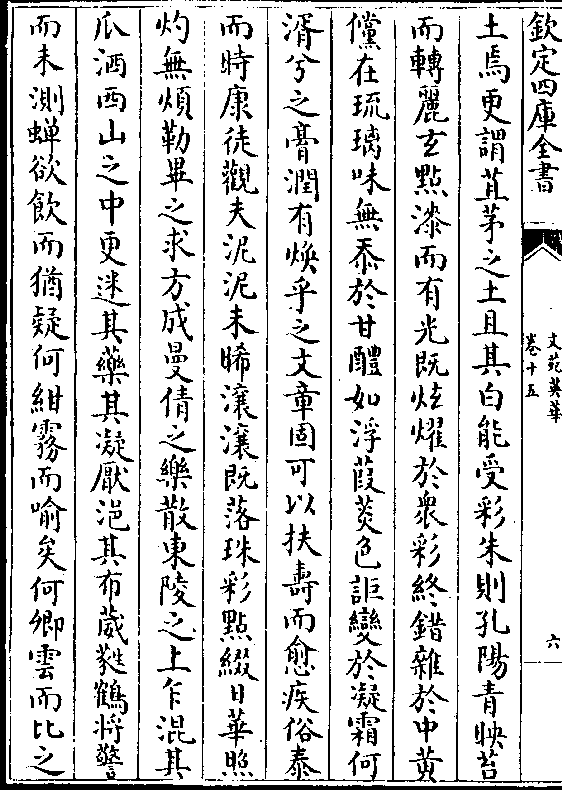 欽定四庫全書
文苑英華
卷十五
六
土焉更謂苴茅之土且其白能受彩朱則孔陽青映苔
而轉麗玄點漆而有光既炫燿於衆彩終錯雜於中黄
儻在琉璃味無忝於甘醴如浮葭菼色詎變於凝霜何
湑兮之膏潤有煥乎之文章固可以扶壽而愈疾俗泰
而時康徒觀夫泥泥未晞瀼瀼既落珠彩點綴日華照
灼無煩勒畢之求方成曼倩之樂散東陵之上乍混其
瓜洒西山之中更迷其藥其凝厭浥其布葳蕤鶴将警
而未測蟬欲飲而猶疑何紺霧而喻矣何卿雲而比之